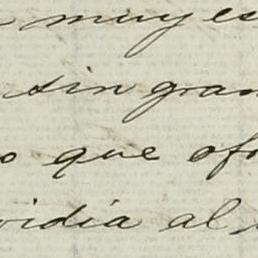 muy es
sin gran
o que ofr
vidia al